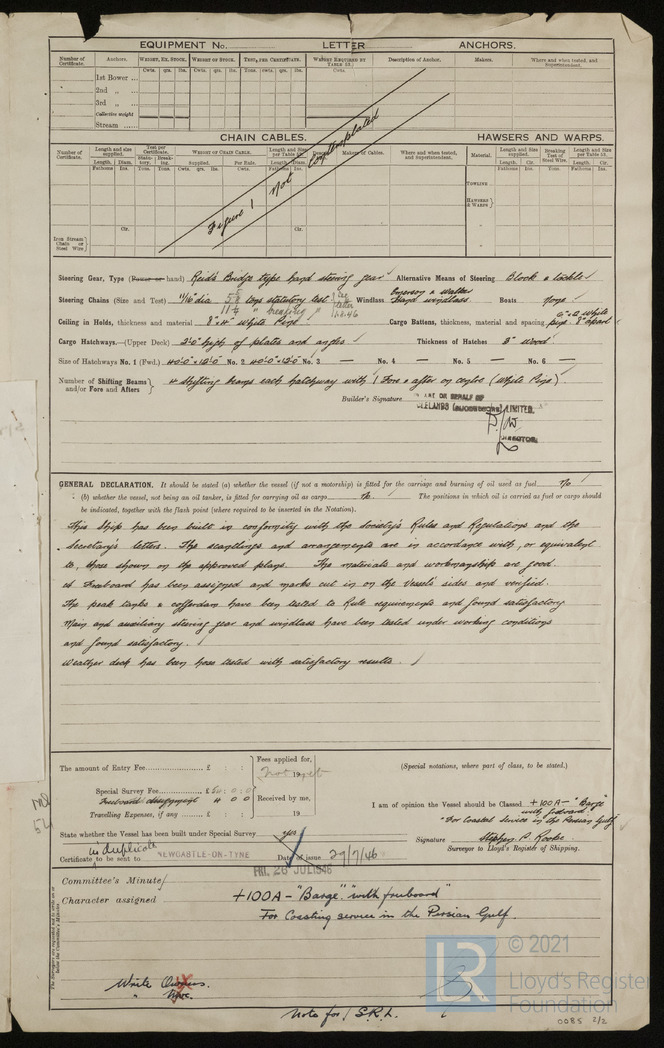 EQUIPMENT No. LETTER ANCHORS.
Number of Certificate. Anchors. WEIGHT, EX. STOCK. WEIGHT OF STOCK. TEST, PER CERTIFICATE. WEIGHT REQUIRED BY TABLE 53. Description of Anchor. Makers. Where and when tested, and Superintendent.
Cwts. qrs. lbs. Cwts. qrs. lbs. Tons. cwts. qrs. lbs. Cwts.
1st Bower
2nd „
3rd „
Collective weight
Stream
CHAIN CABLES. HAWSERS AND WARPS.
Number of Certificate. Length and size supplied. Test per Certificate. WEIGHT OF CHAIN CABLE. Length and Size per Table 53. Makers of Cables. Where and when tested, and Superintendent. Material. Length and Size supplied. Breaking Test of Steel Wire. Length and Size per Table 53.
Length. Diam. Statutory. Breaking. Supplied. Per Rule. Length. Diam. Length. Cir. Length. Cir.
Fathoms Ins. Tons. Tons. Cwts. qrs. lbs. Cwts. Fathoms Ins. Fathoms Ins. Tons. Fathoms Ins.
Figure 1 not contemplated
TOWLINE
HAWSERS & WARPS
Cir. Cir.
Iron Stream Chain or Steel Wire
Steering Gear, Type (Power or hand) Reid's Bridge type hand steering gear Alternative Means of Steering Block & tackle
Steering Chains (Size and Test) 11/16" dia tons statutory test Windlass Emerson & Walker Hand windlass Boats None
" breaking " See letter
Ceiling in Holds, thickness and material 8" x 4" White Pine Cargo Battens, thickness, material and spacing
Cargo Hatchways.—(Upper Deck) 2'-0" high of plates and angles Thickness of Hatches 3" wood
Size of Hatchways No. 1 (Fwd.) 40'-0" x 12'-0" No. 2 40'-0" x 12'-0" No. 3 — No. 4 — No. 5 — No. 6 —
Number of Shifting Beams and/or Fore and Afters 4 shifting beams each hatchway with 1 Fore & after on centre (White Pine)
Builder's Signature FOR AND ON BEHALF OF
CLELANDS (SUCCESSORS) LIMITED.
DIRECTOR
GENERAL DECLARATION. It should be stated (a) whether the vessel (if not a motorship) is fitted for the carriage and burning of oil used as fuel No
(b) whether the vessel, not being an oil tanker, is fitted for carrying oil as cargo No. The positions in which oil is carried as fuel or cargo should
be indicated, together with the flash point (where required to be inserted in the Notation).
This Ship has been built in conformity with the Society's Rules and Regulations and the
Secretary's letters. The scantlings and arrangements are in accordance with, or equivalent
to, those shown on the approved plans. The materials and workmanship are good.
A Freeboard has been assigned and marks cut in on the Vessel's sides and verified.
The peak tanks & cofferdam have been tested to Rule requirements and found satisfactory
Main and auxiliary steering gear and windlass have been tested under working conditions
and found satisfactory.
Weather deck has been hose tested with satisfactory results.
The amount of Entry Fee £ : : Fees applied for,
Not 19 yet (Special notations, where part of class, to be stated.)
Special Survey Fee £
Freeboard assignment 4 0 0 Received by me, I am of opinion the Vessel should be Classed +100A – "Barge"
with freeboard
Travelling Expenses, if any £ : : 19 "For Coastal Service in the Persian Gulf"
State whether the Vessel has been built under Special Survey yes Signature Stephen P. Rooke
Surveyor to Lloyd's Register of Shipping.
in duplicate
Certificate to be sent to NEWCASTLE-ON-TYNE Date of issue 29/7/46
FRI. 26 JUL 1946
Committee's Minute
Character assigned +100A – "Barge" "with freeboard"
For Coasting service in the Persian Gulf.
The Surveyors are requested not to write on or below the Committee's Minutes.
Write Owners.
Note for S.R.L.
LR
© 2021
Lloyd's Register
Foundation
0085 2/2